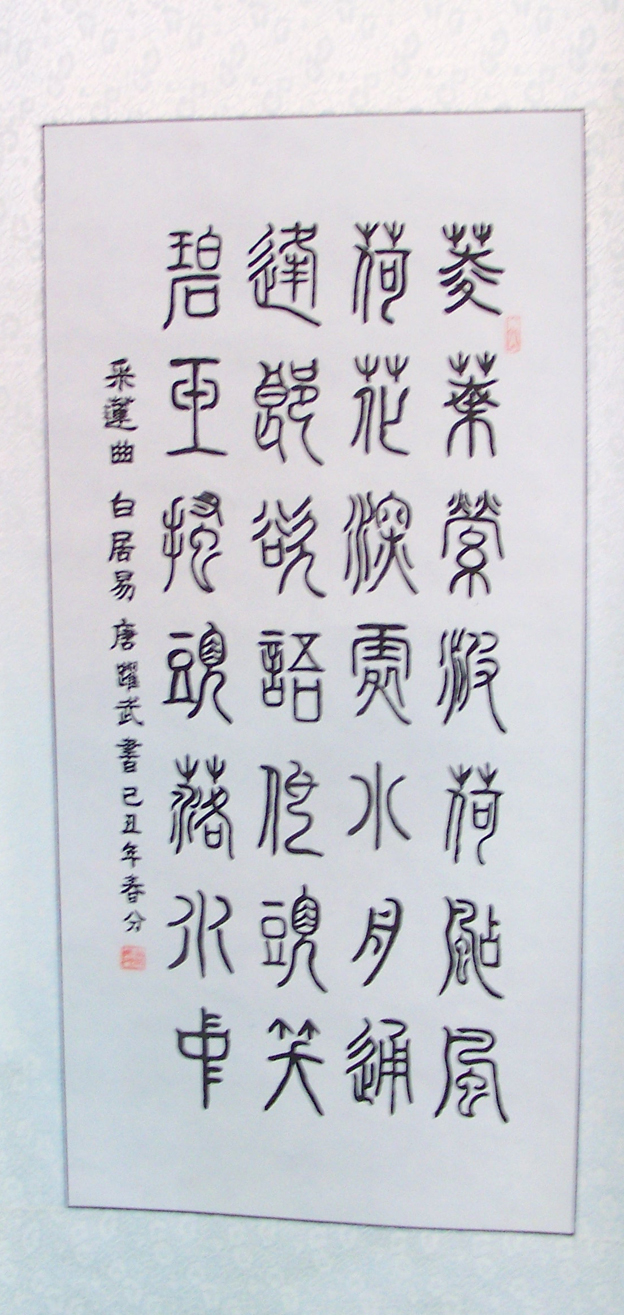 菱葉縈波荷颭風
荷花深處小舟通
逢郎欲語低頭笑
碧玉搔頭落水中
采蓮曲 白居易 唐躍武書 己丑年春分